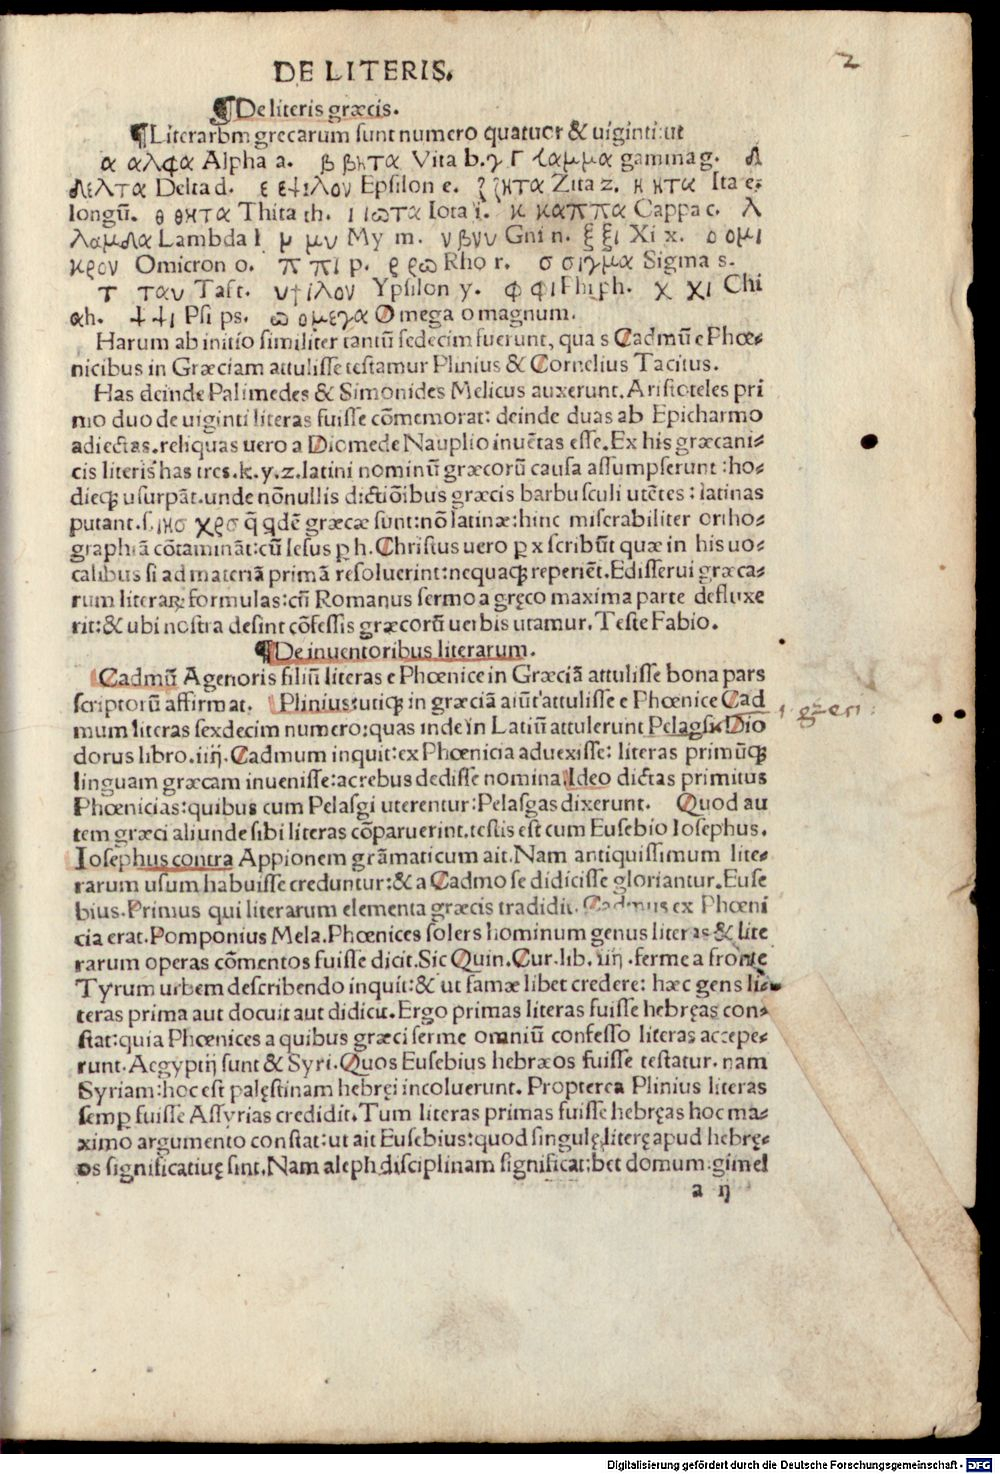 2
DE LITERIS.
¶De literis græcis.
¶Literarum grecarum sunt numero quatuor & uiginti:ut
α αλφα Alpha a. β βητα Vita b. γ Γ γαμμα gamma g. δ
δελτα Delta d. ε εψιλον Epsilon e. ζ ζητα Zita z. η ητα Ita e.
longũ. θ θητα Thita th. ι ιωτα Iota i. κ καππα Cappa c. λ
λαμδα Lambda l μ μυ My m. ν νυ Gni n. ξ ξι Xi x. ο ομι
κρον Omicron o. π πι p. ρ ρω Rho r. σ σιγμα Sigma s.
τ ταυ Taf t. υψιλον Ypsilon y. φ φι Phi ph. χ χι Chi
ch. ψ ψι Psi ps. ω ομεγα Omega o magnum.
Harum ab initio similiter tantũ sedecim fuerunt, qua s Cadmũ e Phœ-
nicibus in Græciam attulisse testamur Plinius & Cornelius Tacitus.
Has deinde Palimedes & Simonides Melicus auxerunt. Aristoteles pri
mo duo de uiginti literas fuisse cõmemorat: deinde duas ab Epicharmo
adiectas. reliquas uero a Diomede Nauplio inuẽtas esse. Ex his græcani-
cis literis has tres .k.y.z. latini nominũ græcorũ causa assumpserunt :ho-
dieqꝫ usurpãt. unde nõnullis dictiõibus græcis barbusculi utẽtes : latinas
putant. s. ιησ χρσ q̃ qdẽ græcæ sunt: nõ latinæ: hinc miserabiliter ortho-
graphiã cõtaminãt: cũ Iesus p h. Christus uero p x scribũt quæ in his uo-
calibus si ad materiã primã resoluerint: nequaqꝫ reperiẽt. Edisserui græca-
rum literaꝝ formulas: cũ Romanus sermo a gręco maxima parte defluxe
rit: & ubi nostra desint cõfessis græcorũ uerbis utamur. Teste Fabio.
¶De inuentoribus literarum.
Cadmũ Agenoris filiũ literas e Phœnice in Græciã attulisse bona pars
scriptorũ affirmat. Plinius: utiqꝫ in græciã aiũt attulisse e Phœnice Cad
mum literas sexdecim numero: quas inde in Latiũ attulerunt Pelasgi. Dio
dorus libro .iiij. Cadmum inquit: ex Phœnicia aduexisse: literas primũqꝫ
linguam græcam inuenisse: ac rebus dedisse nomina. Ideo dictas primitus
Phœnicias: quibus cum Pelasgi uterentur: Pelasgas dixerunt. Quod au
tem græci aliunde sibi literas cõparuerint. testis est cum Eusebio Iosephus.
Iosephus contra Appionem grãmaticum ait. Nam antiquissimum lite-
rarum usum habuisse creduntur: & a Cadmo se didicisse gloriantur. Euse
bius. Primus qui literarum elementa græcis tradidit. Cadmus ex Phœni
cia erat. Pomponius Mela. Phœnices solers hominum genus literas & lite
rarum operas cõmentos fuisse dicit. Sic Quin. Cur. lib. iiij .ferme a fronte
Tyrum urbem describendo inquit: & ut famæ libet credere: hæc gens li-
teras prima aut docuit aut didicit. Ergo primas literas fuisse hebręas con-
stat: quia Phœnices a quibus græci ferme omniũ confesso literas accepe-
runt. Aegyptij sunt & Syri. Quos Eusebius hebræos fuisse testatur. nam
Syriam: hoc est palęstinam hebręi incoluerunt. Propterea Plinius literas
semp fuisse Assyrias credidit. Tum literas primas fuisse hebręas hoc ma-
ximo argumento constat: ut ait Eusebius: quod singulę literę apud hebrę-
os significatiuę sint. Nam aleph disciplinam significat: bet domum: gimel
a ij
Digitalisierung gefördert durch die Deutsche Forschungsgemeinschaft - DFG